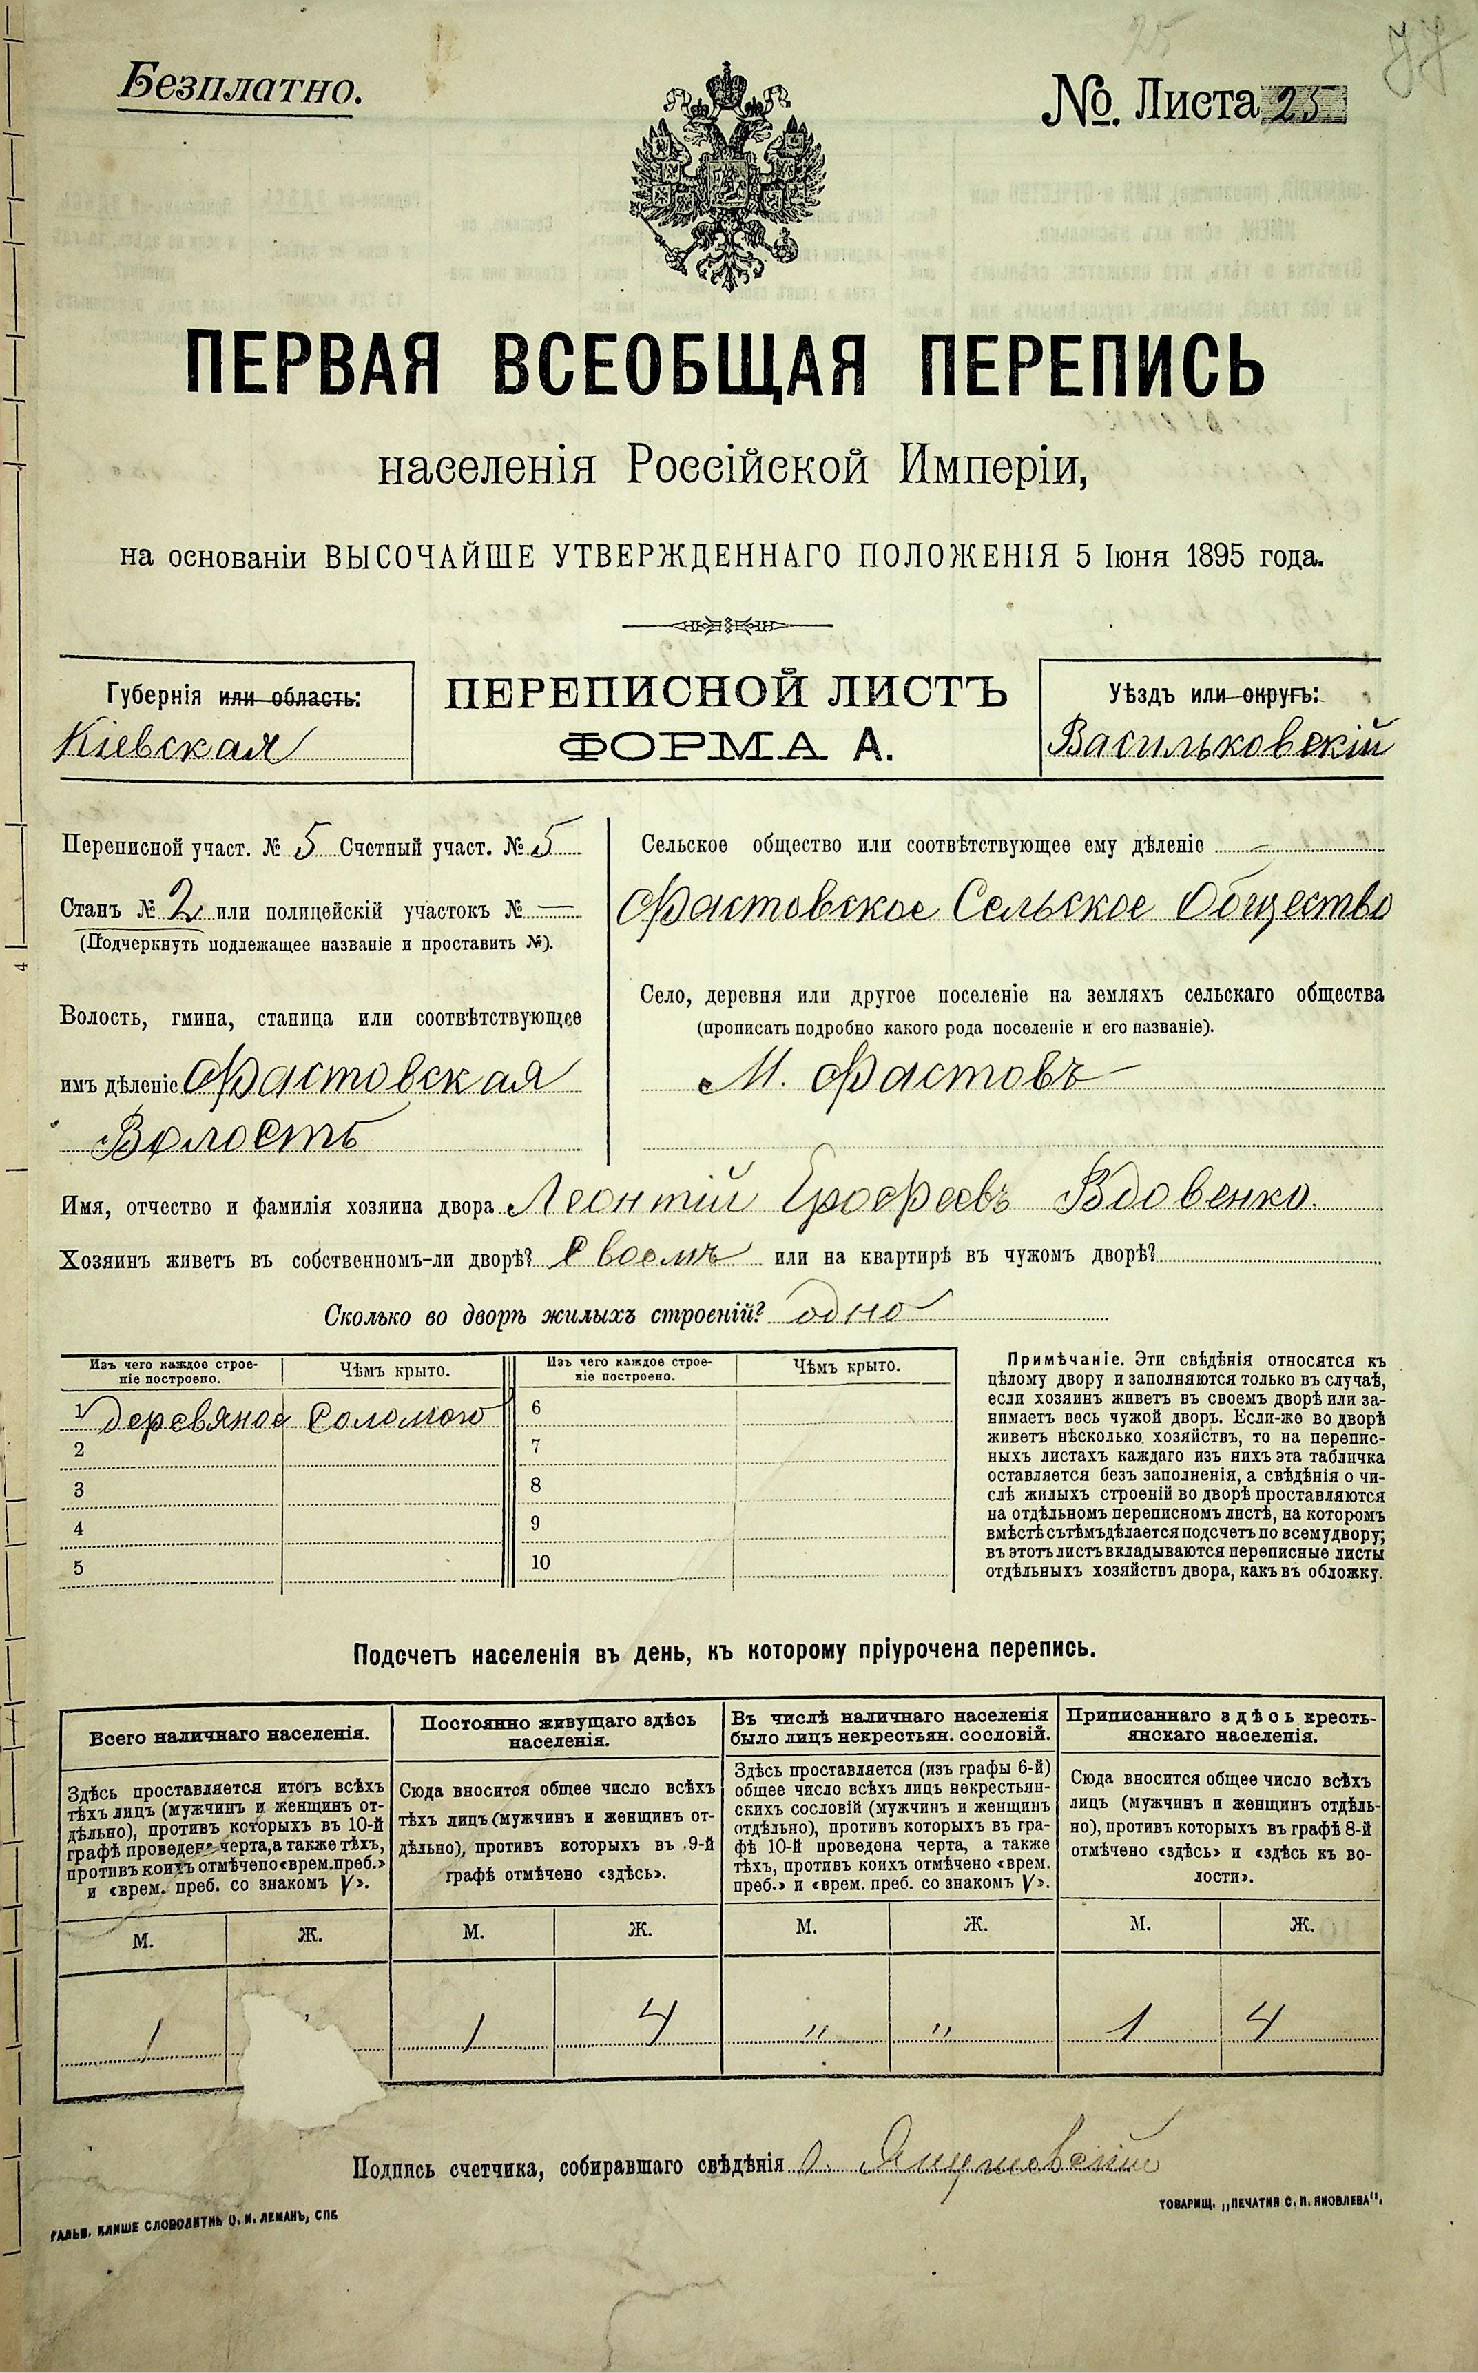 25
Безплатно.
№. Листа 25
ПЕРВАЯ ВСЕОБЩАЯ ПЕРЕПИСЬ
населенія Россійской Имперіи,
на основаніи ВЫСОЧАЙШЕ УТВЕРЖДЕННАГО ПОЛОЖЕНІЯ 5 Іюня 1895 года.
Губернія или область:
Кіевская
ПЕРЕПИСНОЙ ЛИСТЪ
ФОРМА А.
Уѣздъ или округъ:
Васильковскій
Переписной участ. № 5 Счетный участ. № 5
Станъ № 2 или полицейскій участокъ № —
(Подчеркнуть подлежащее названіе и проставить №).
Волость, гмина, станица или соотвѣтствующее
имъ дѣленіе Фастовская
Волость
Сельское общество или соотвѣтствующее ему дѣленіе
Фастовское Сельское Общество
Село, деревня или другое поселеніе на земляхъ сельскаго общества
(прописать подробно какого рода поселеніе и его названіе).
М. Фастовъ
Имя, отчество и фамилія хозяина двора Леонтій Ерофеевъ Вдовенко.
Хозяинъ живетъ въ собственномъ-ли дворѣ? Своемъ или на квартирѣ въ чужомъ дворѣ?
Сколько во дворѣ жилыхъ строеній? одно
Изъ чего каждое строе-
ніе построено.
Чѣмъ крыто.
Изъ чего каждое строе-
ніе построено.
Чѣмъ крыто.
1 деревяное Соломою
2
3
4
5
6
7
8
9
10
Примѣчаніе. Эти свѣдѣнія относятся къ
цѣлому двору и заполняются только въ случаѣ,
если хозяинъ живетъ въ своемъ дворѣ или за-
нимаетъ весь чужой дворъ. Если-же во дворѣ
живетъ нѣсколько хозяйствъ, то на перепис-
ныхъ листахъ каждаго изъ нихъ эта табличка
оставляется безъ заполненія, а свѣдѣнія о чи-
слѣ жилыхъ строеній во дворѣ проставляются
на отдѣльномъ переписномъ листѣ, на которомъ
вмѣстѣ съ тѣмъ дѣлается подсчетъ по всему двору;
въ этотъ листъ вкладываются переписные листы
отдѣльныхъ хозяйствъ двора, какъ въ обложку.
Подсчетъ населенія въ день, къ которому пріурочена перепись.
Всего наличнаго населенія.
Здѣсь проставляется итогъ всѣхъ
тѣхъ лицъ (мужчинъ и женщинъ от-
дѣльно), противъ которыхъ въ 10-й
графѣ проведена черта, а также тѣхъ,
противъ коихъ отмѣчено «врем. преб.»
и «врем. преб. со знакомъ V».
М. Ж.
1
Постоянно живущаго здѣсь
населенія.
Сюда вносится общее число всѣхъ
тѣхъ лицъ (мужчинъ и женщинъ от-
дѣльно), противъ которыхъ въ 9-й
графѣ отмѣчено «здѣсь».
М. Ж.
1 4
Въ числѣ наличнаго населенія
было лицъ некрестьян. сословій.
Здѣсь проставляется (изъ графы 6-й)
общее число всѣхъ лицъ некрестьян-
скихъ сословій (мужчинъ и женщинъ
отдѣльно), противъ которыхъ въ гра-
фѣ 10-й проведена черта, а также
тѣхъ, противъ коихъ отмѣчено «врем.
преб.» и «врем. преб. со знакомъ V».
М. Ж.
" "
Приписаннаго здѣсь кресть-
янскаго населенія.
Сюда вносится общее число всѣхъ
лицъ (мужчинъ и женщинъ отдѣль-
но), противъ которыхъ въ графѣ 8-й
отмѣчено «здѣсь» и «здѣсь къ во-
лости».
М. Ж.
1 4
Подпись счетчика, собиравшаго свѣдѣнія
ГАЛЬВ. КЛИШЕ СЛОВОЛИТНИ О. И. ЛЕМАНЪ, СПБ
ТОВАРИЩ. „ПЕЧАТНЯ С. П. ЯКОВЛЕВА".